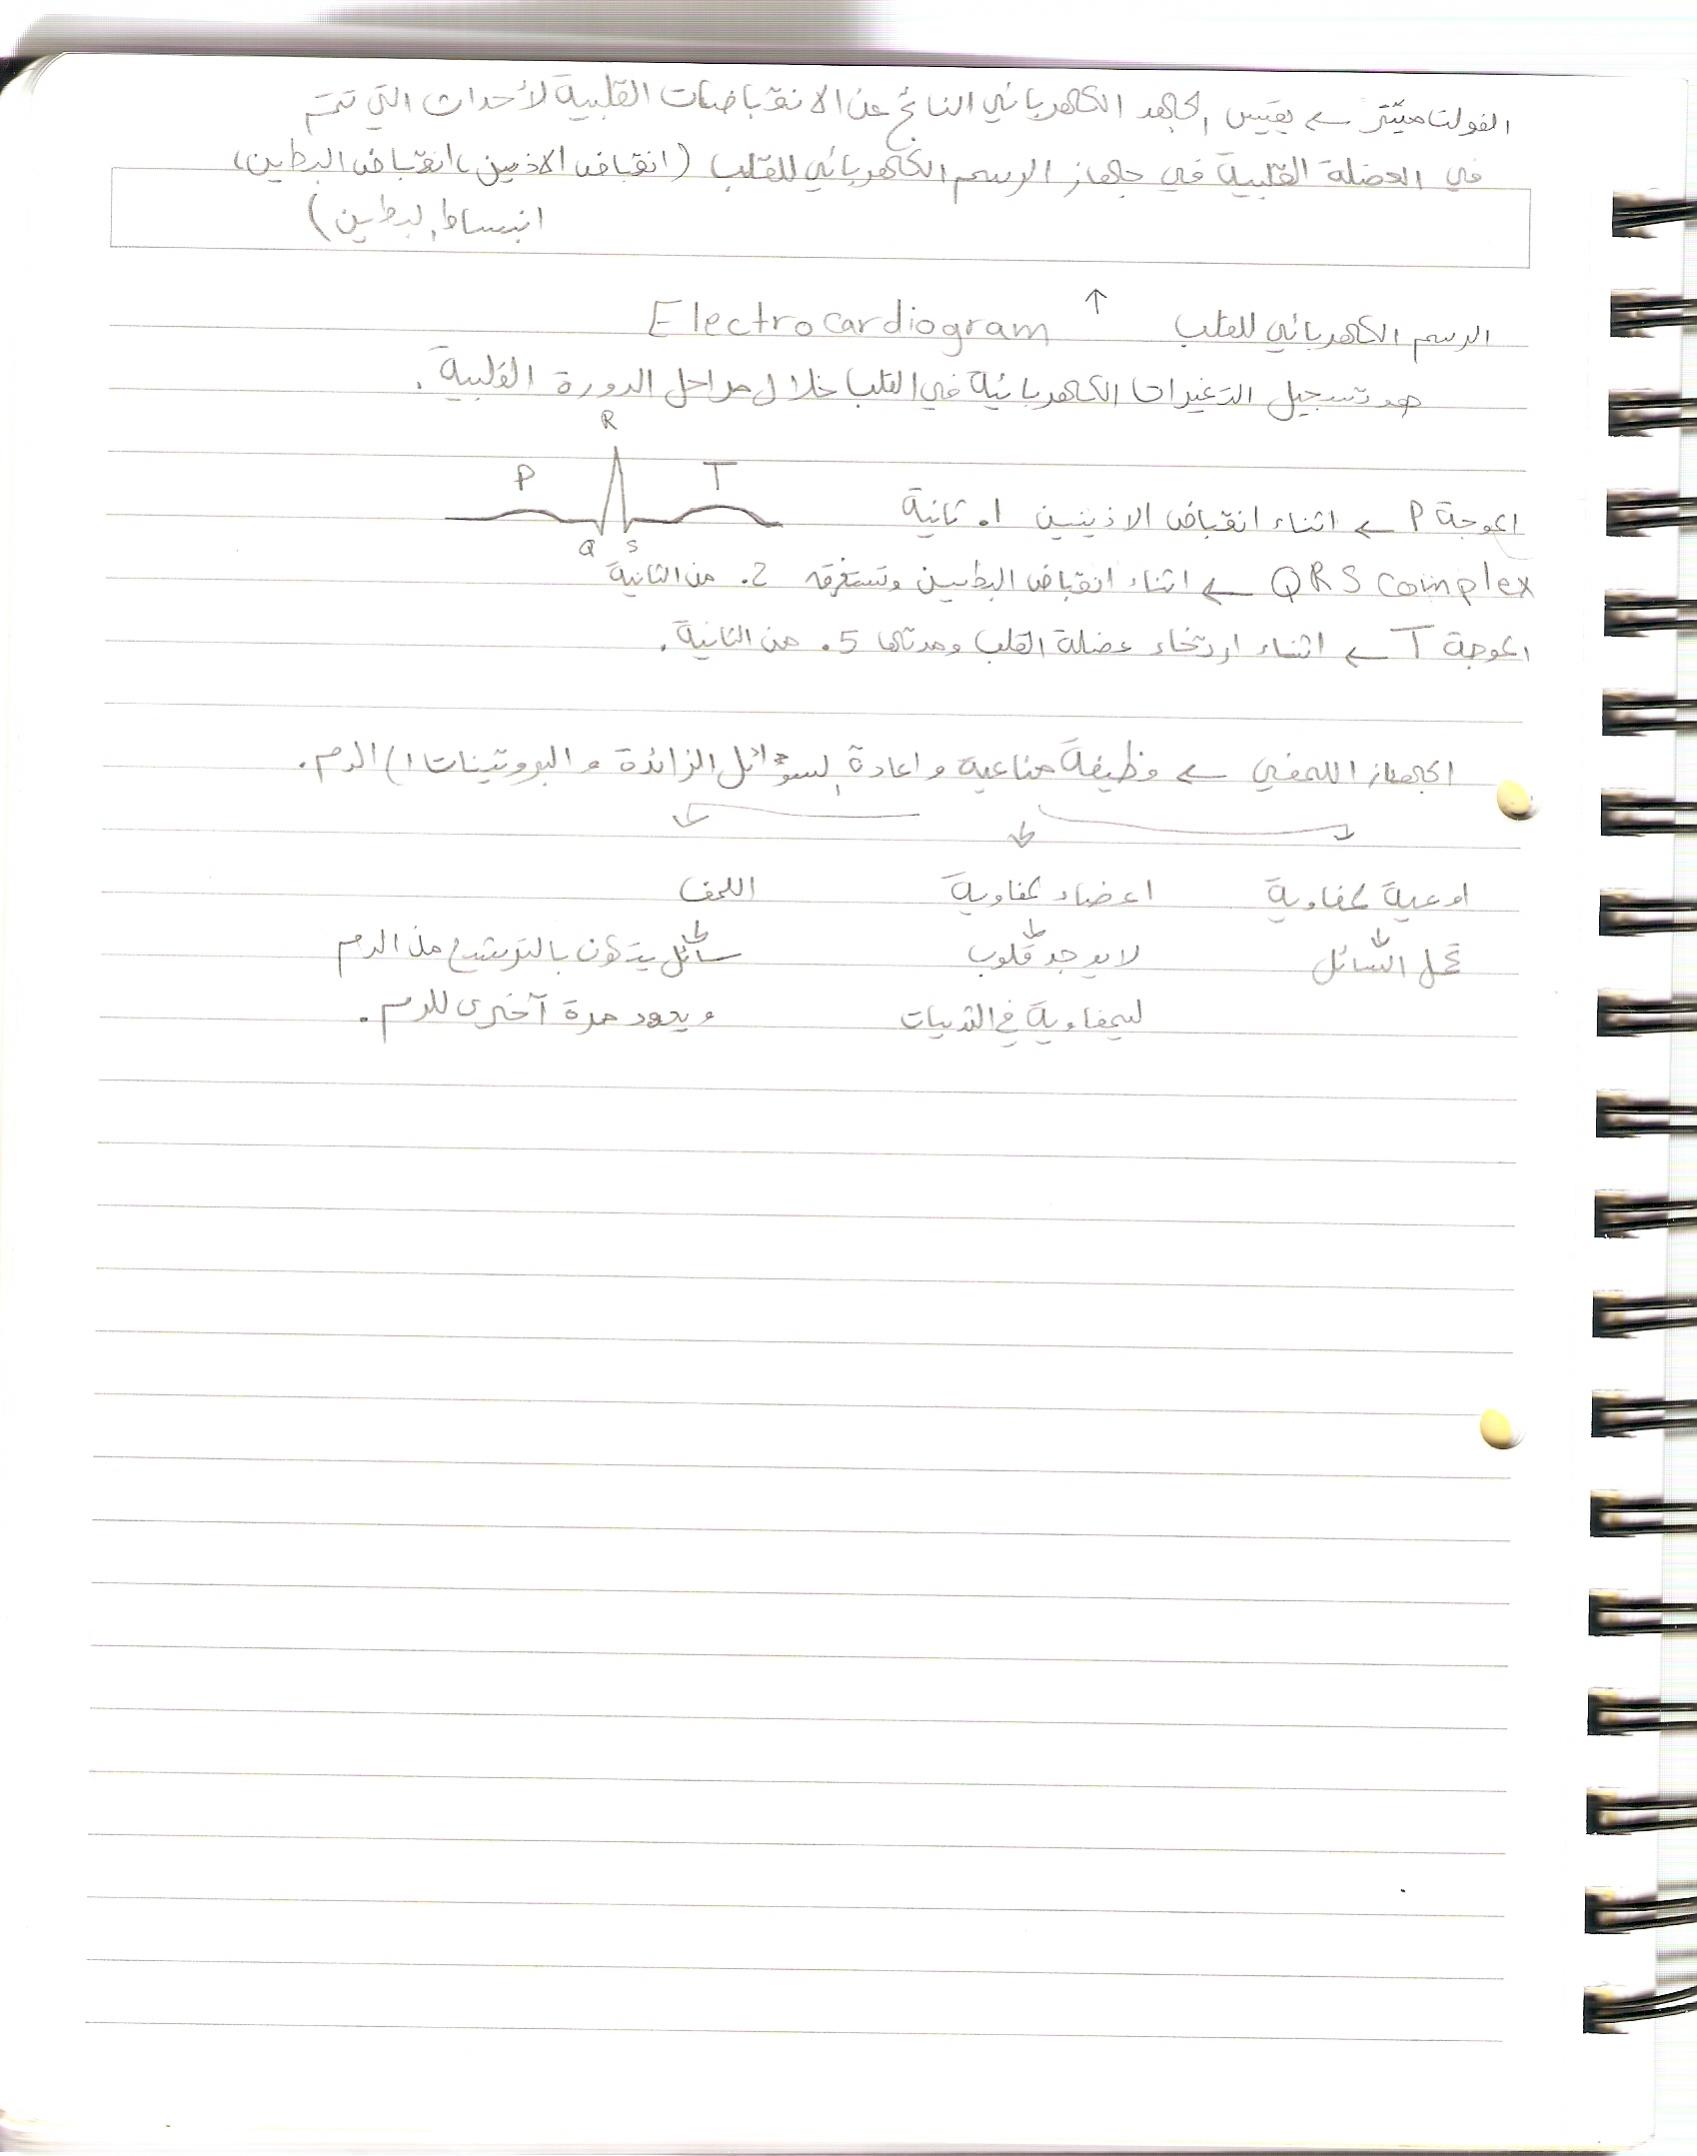 الفولتاميتر ← يقيس الجهد الكهربائي الناتج عن الانقباضات القلبية لأحداث التي تتم
في العضلة القلبية في جهاز الرسم الكهربائي للقلب (انقباض الاذنين، انقباض البطين،
انبساط البطين)
الرسم الكهربائي للقلب ↑ Electrocardiogram
هو تسجيل التغيرات الكهربائية في القلب خلال مراحل الدورة القلبية.
R
P T
Q S
الموجة P ← اثناء انقباض الاذينين 1. ثانية
QRS complex ← اثناء انقباض البطينين وتستغرق 2. من الثانية
الموجة T ← اثناء ارتخاء عضلة القلب ومدتها 5. من الثانية.
الجهاز اللمفي ← وظيفة مناعية واعادة السوائل الزائدة والبروتينات الدم.
اوعية لمفاوية اعضاء لمفاوية اللمف
تحمل السائل لا يوجد قلوب سائل يتكون بالترشيح من الدم
ليمفاوية في الثدييات ويعود مرة آخرى للدم.